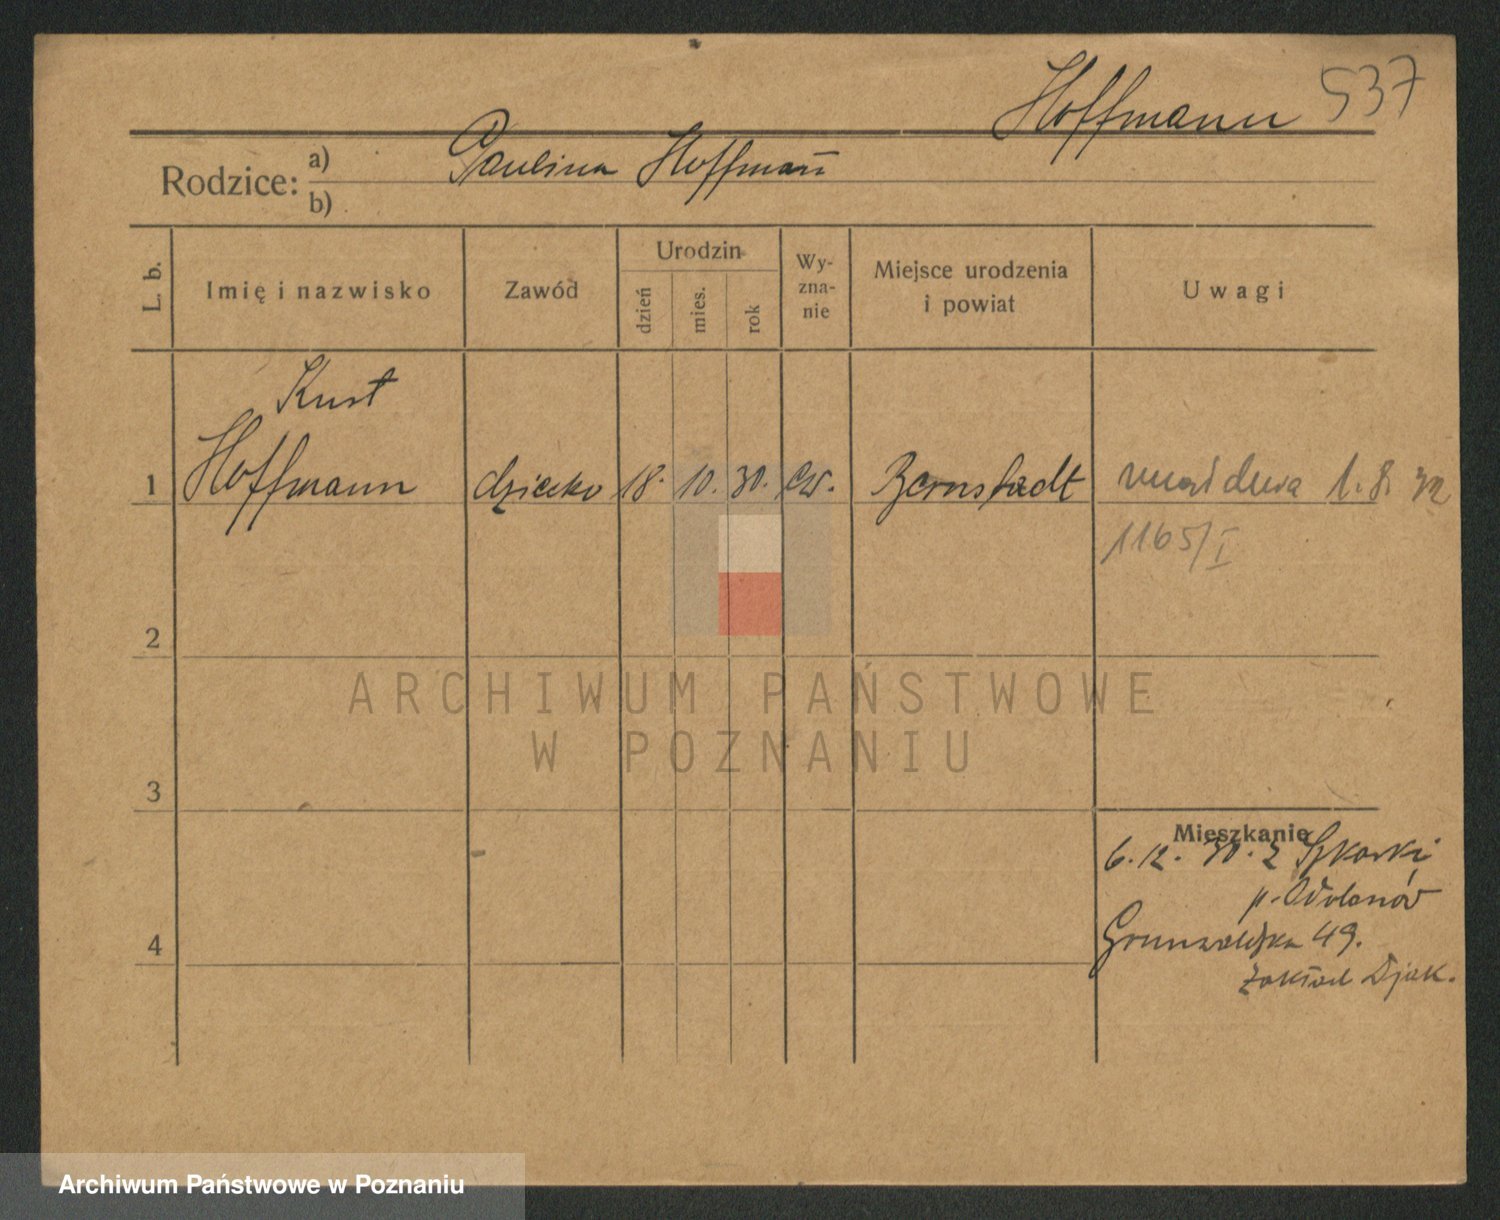 Hoffmann 537
Rodzice: a) Paulina Hoffmañ
b)
L. b.
Imię i nazwisko
Zawód
Urodzin
dzień
mies.
rok
Wy-
zna-
nie
Miejsce urodzenia
i powiat
Uwagi
Kurt
1 Hoffmann dziecko 18. 10. 30. ew. Bernstadt 1. 8. 32
1165/I
2
ARCHIWUM PAŃSTWOWE
W POZNANIU
3
Mieszkanie
6. 12. 30. z
p. Odolanów
4 Grunwaldzka 49.
Zakład Djak.
Archiwum Państwowe w Poznaniu